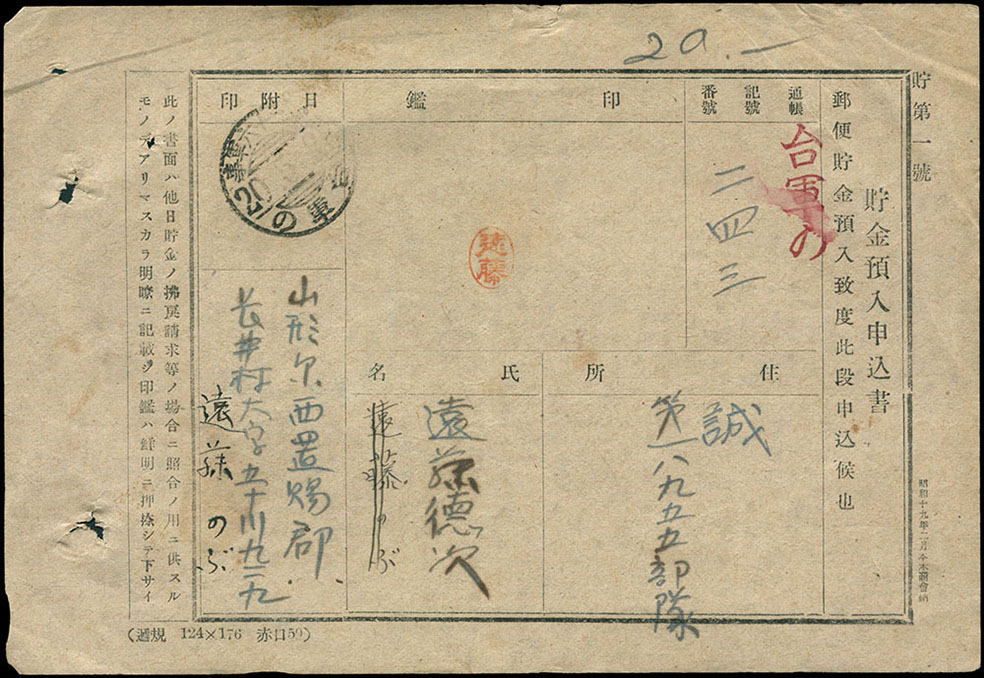 20.—
貯第一號
貯金預入申込書
郵便貯金預入致度此段申込候也
昭和十九年二月
通帳
記號
番號
台軍の
二四三
印鑑
遠藤
日附印
軍
の
20
住所
誠
第一八九五五部隊
氏名
遠藤徳次
遠藤のぶ
山形県西置賜郡
長井村大字五十川九二九
遠藤のぶ
此ノ書面ハ他日貯金ノ拂戻請求等ノ場合ニ照合ノ用ニ供スル
モノデアリマスカラ明瞭ニ記載シ印鑑ハ鮮明ニ押捺シテ下サイ
(遞規 124×176 赤口50)